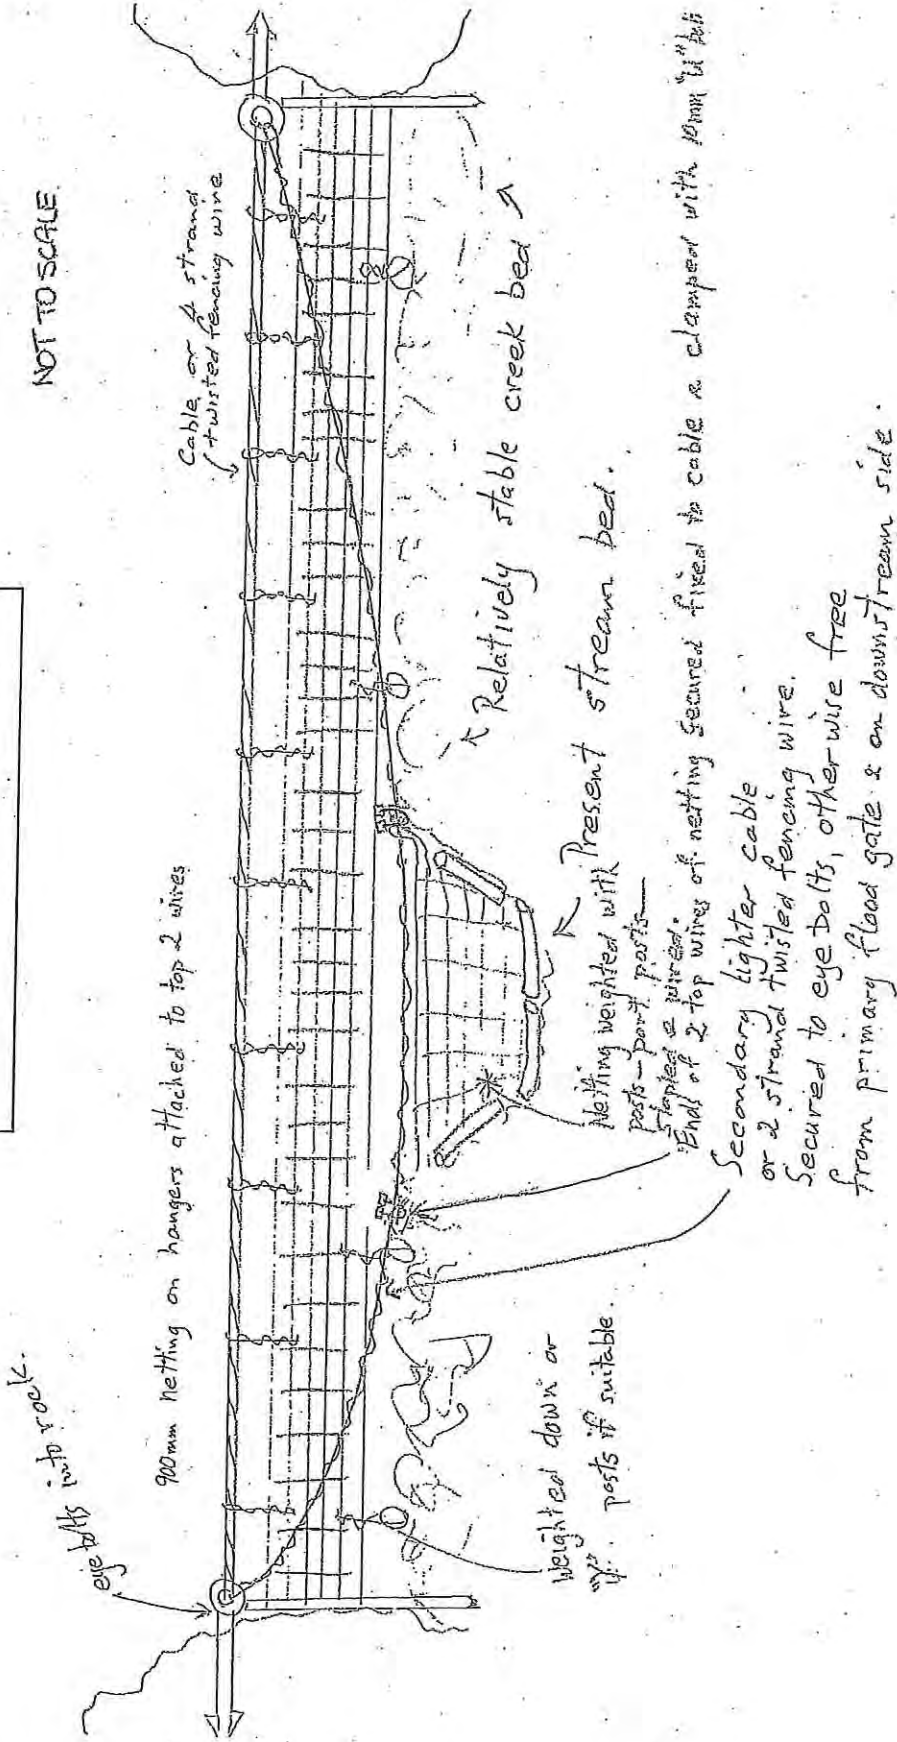 NOT TO SCALE.
eye bolts into rock.
900mm netting on hangers attached to top 2 wires
Cable or 4 strand
twisted fencing wire
Relatively stable creek bed
Present stream bed.
Weighted down or
"Y" posts if suitable
Netting weighted with
posts - part posts
stapled & wired.
Ends of 2 top wires of netting secured fixed to cable & clamped with 10mm "U" bolt
Secondary lighter cable
or 2 strand twisted fencing wire.
Secured to eye bolts, other wise free
from primary flood gate & on downstream side.